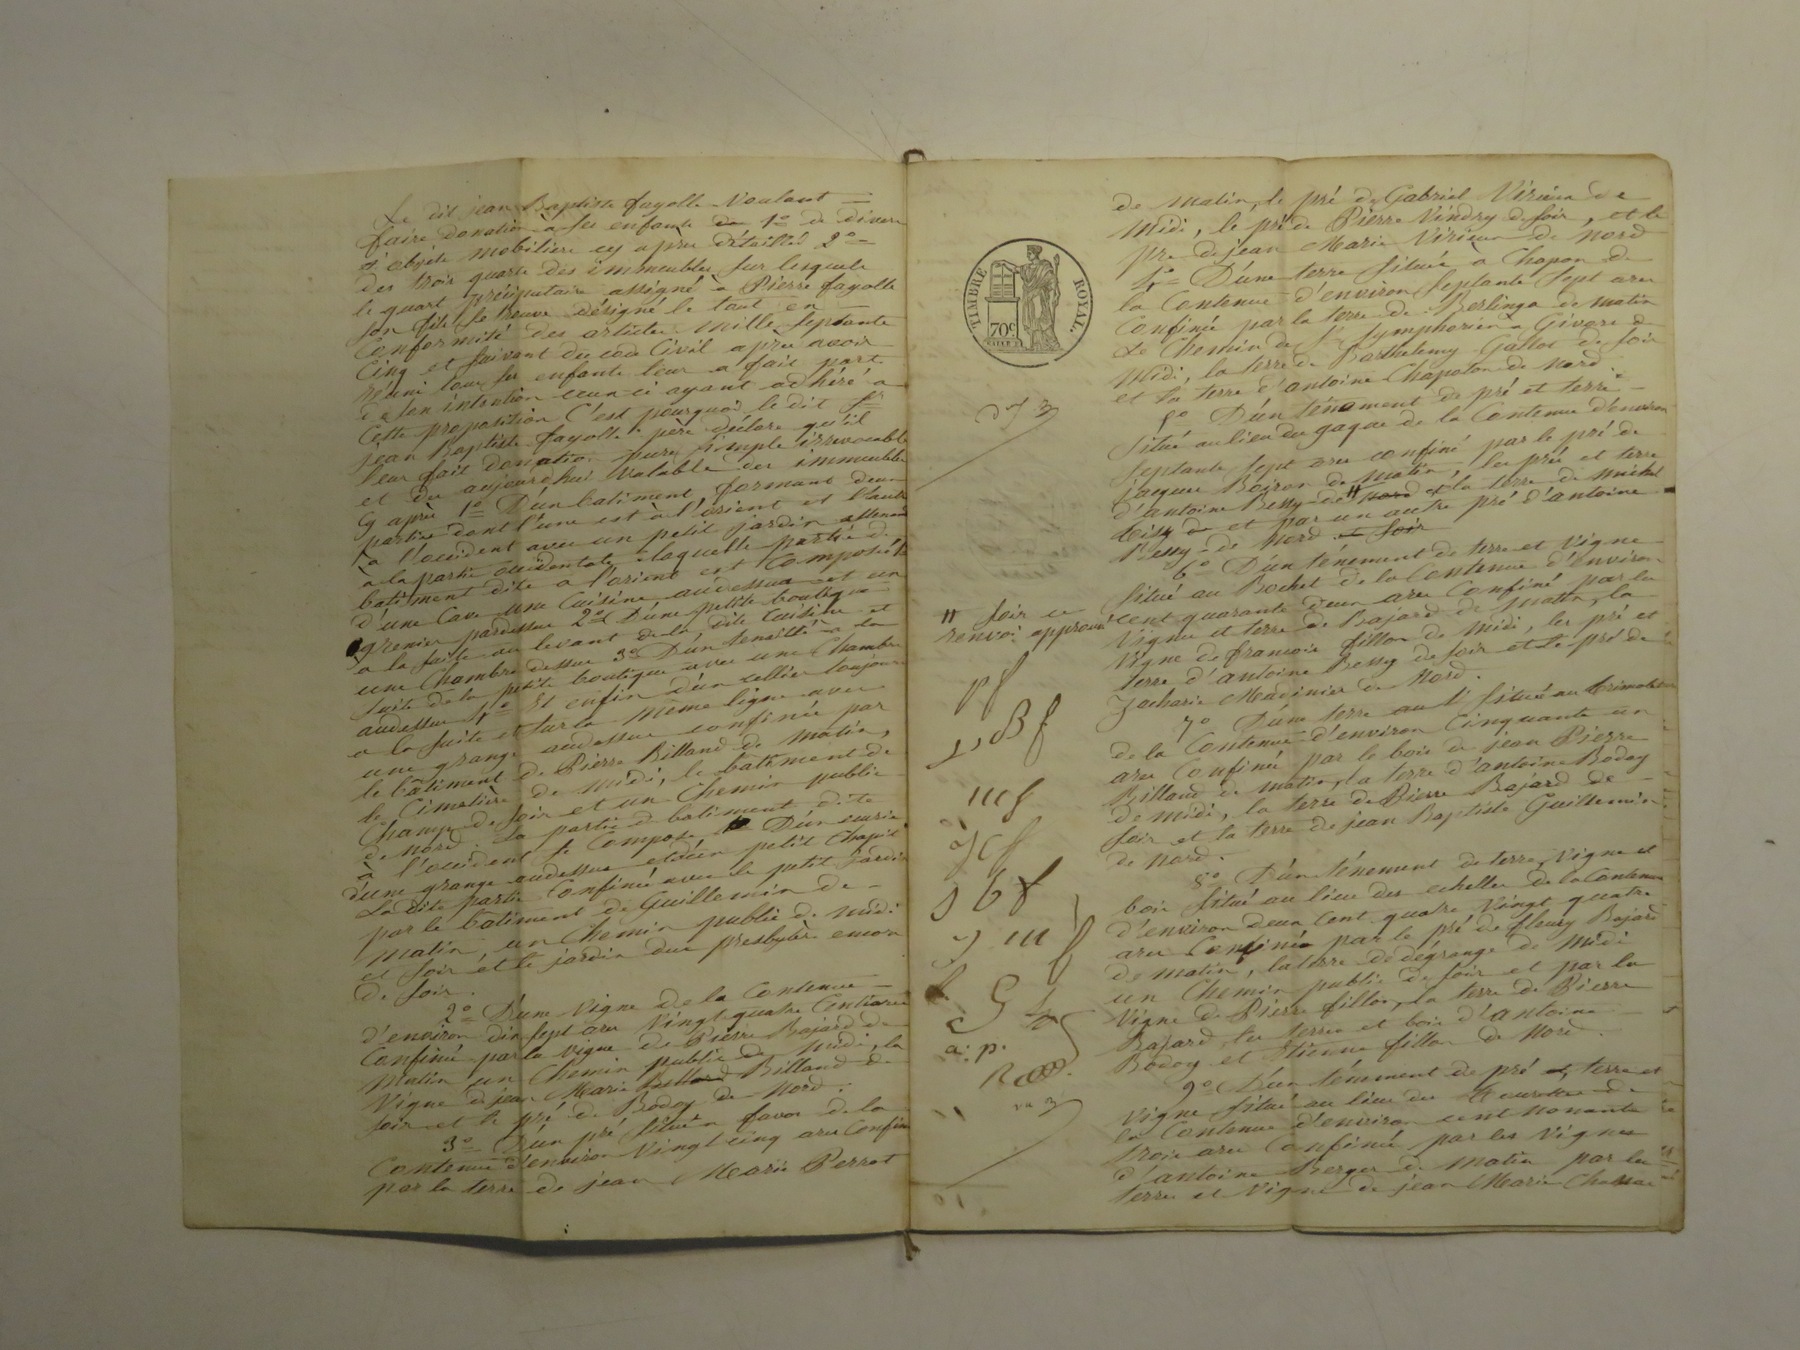 Le dit jean Baptiste fayolle Voulant
faire donation à ses enfants de 1º de divers
d'objets mobiliers cy après détaillés 2º
des trois quarts des immeubles sur lesquels
le quart préciputaire assigné à Pierre fayolle
son fils se trouve désigné le tout en
Conformité des articles Mille Septante
Cinq et suivant du code Civil après avoir
réuni tous ses enfants leur a fait part
de son intention ceux-ci ayant adhéré à
Cette proposition C'est pourquoi le dit
jean Baptiste fayolle père déclare qu'il
leur fait donation pure simple irrévocable
et dès aujourd'hui valable des immeubles
Cy après 1º D'un batiment, formant deux
parties dont l'une est à l'orient et l'autre
à l'occident avec un petit jardin attenant
à la partie occidentale laquelle partie de
batiment dite à l'orient est Composée
d'une Cave une Cuisine audessus et un
grenier pardessus 2º D'une petite boutique
à la suite au levant de la dite Cuisine et
une Chambre dessus 3º D'un à la
suite de la petite boutique avec une Chambre
audessus 4º Et enfin d'un cellier toujours
à la suite et sur la même ligne avec
une grange audessus confinée par
le batiment de Pierre Billand de Matin,
le Cimetière de midi, le batiment de
Change de soir et un Chemin public
de Nord. La partie de batiment dite
à l'occident se Compose D'un écurie
d'une grange audessus et d'un petit Chapit
La dite partie Confinée avec le petit jardin
par le batiment de Guillemin de
Matin, un Chemin public de midi
et soir et le jardin du presbytère encor
de soir.
2º D'une Vigne de la Contenue
d'environ dix sept ares Vingt quatre Centiares
Confiné par la vigne de Pierre Bajard de
Matin un Chemin public de midi, la
Vigne de jean Marie Billand de
soir et le pré de Bodoy de Nord.
3º D'un pré situé à favor de la
Contenue d'environ Vingt cinq ares Confiné
par la terre de jean Marie Perrot
TIMBRE ROYAL.
70c
de matin, le pré de Gabriel Virieux de
Midi, le pré de Pierre Vindry de soir, et le
pré de jean Marie Virieux de Nord
4º D'une terre située à Chapon de
la Contenue d'environ Septante Sept ares
Confinée par la terre de Berlinga de matin
Le Chemin de St Symphorien à Givors de
Midi, la terre de Barthelemy Gallot de soir
et la terre d'antoine Chapoton de Nord.
5º D'un ténement de pré et terre
Situé au lieu du gagat de la Contenue d'environ
Septante Sept ares confiné par le pré de
jacques Boiron de Matin, les prés et terre
d'antoine Bessy de " Nord et la terre de Michel
de et par un autre pré d'antoine
Bessy de Nord et Soir
6º D'un ténement de terre et Vigne
Situé au Bochet de la Contenue d'environ
cent quarante deux ares Confiné par la
Vigne et terre de Bajard de Matin, la
Vigne de françois fillon de Midi, les pré et
terre d'antoine Bessy de soir et le pré de
Zacharie Madinier de Nord.
" soir ce
renvoi approuvé
7º D'une terre Située au
de la Contenue d'environ Cinquante un
ares Confiné par le bois de jean Pierre
Billand de matin, la terre d'antoine Bodoy
de midi, la terre de Pierre Bajard de
soir et la terre de jean Baptiste Guillemin
de Nord.
8º D'un ténement de terre, Vigne et
bois Situé au lieu des echelles de la Contenue
d'environ deux Cent quatre Vingt quatre
ares Confiné par le pré de fleury Bajard
de Matin, la terre de dégrange de Midi
un Chemin public de soir et par la
Vigne de Pierre fillon, la terre de Pierre
Bajard, les terres et bois d'antoine
Bodoy et Etienne fillon de Nord.
9º D'un ténement de pré terre et
Vigne Situé au lieu des de
la Contenue d'environ cent nonante
trois ares Confiné par les Vignes
d'antoine Berger de Matin par les
terres et Vigne de jean Marie
pf
jBf
mf
jcf
jmf
a. p.